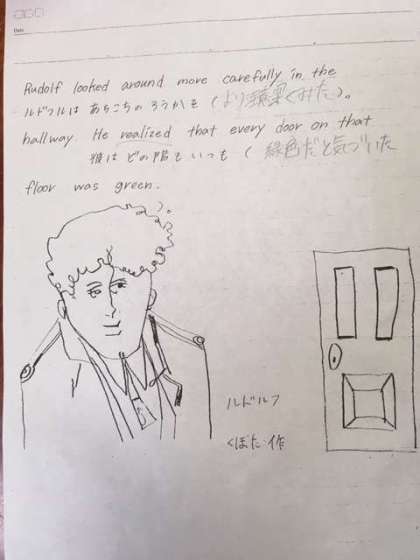 Date
Rudolf looked around more carefully in the
ルドルフは あちこちのろうかを (より注意深くみた)。
hallway. He realized that every door on that
彼は どの階も いつも ( 緑色だと気づいた
floor was green.
ルドルフ
くぼた 作